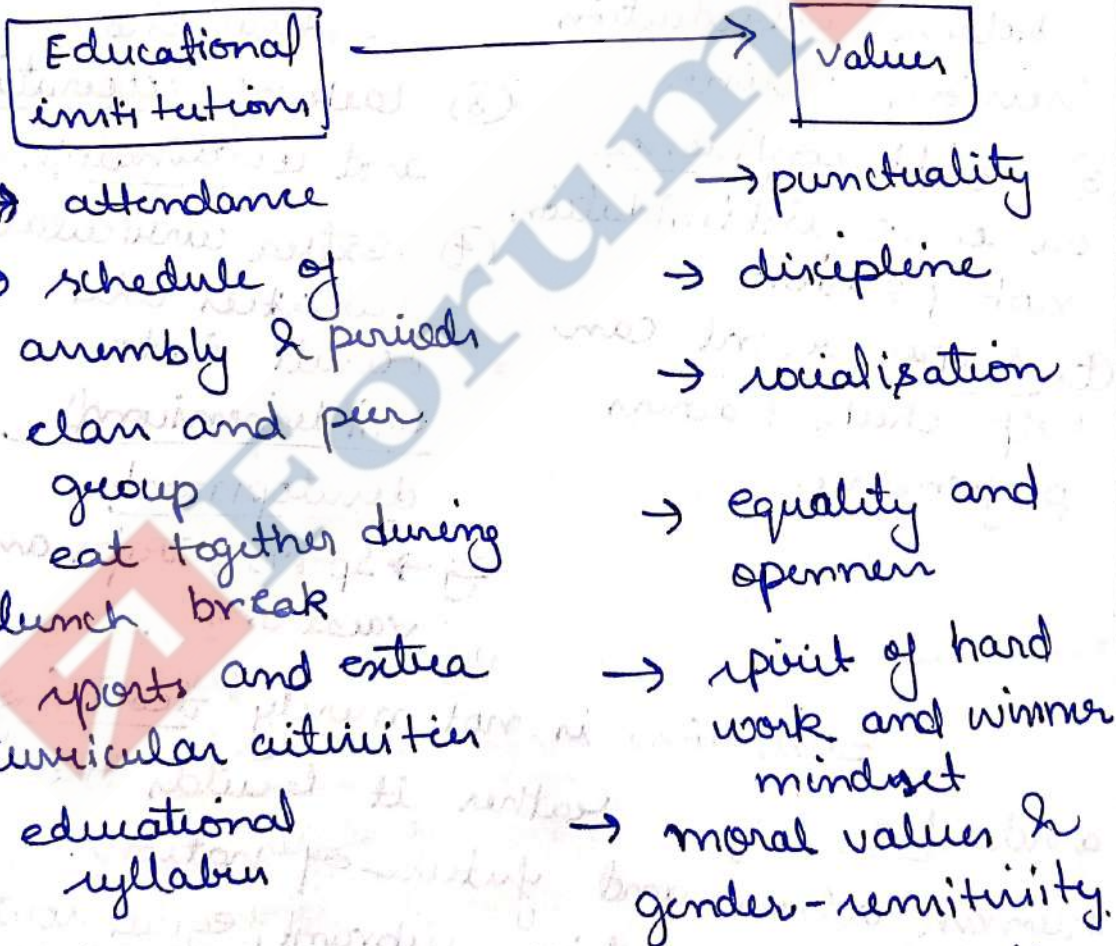 Educational
institutions
values
→ attendance
→ punctuality
→ schedule of
assembly & periods
→ discipline
class and peer
group
→ socialisation
eat together during
lunch break
→ equality and
openness
sports and extra
curricular activities
→ spirit of hard
work and winner
mindset
educational
syllabus
→ moral values &
gender-sensitivity.
Forum